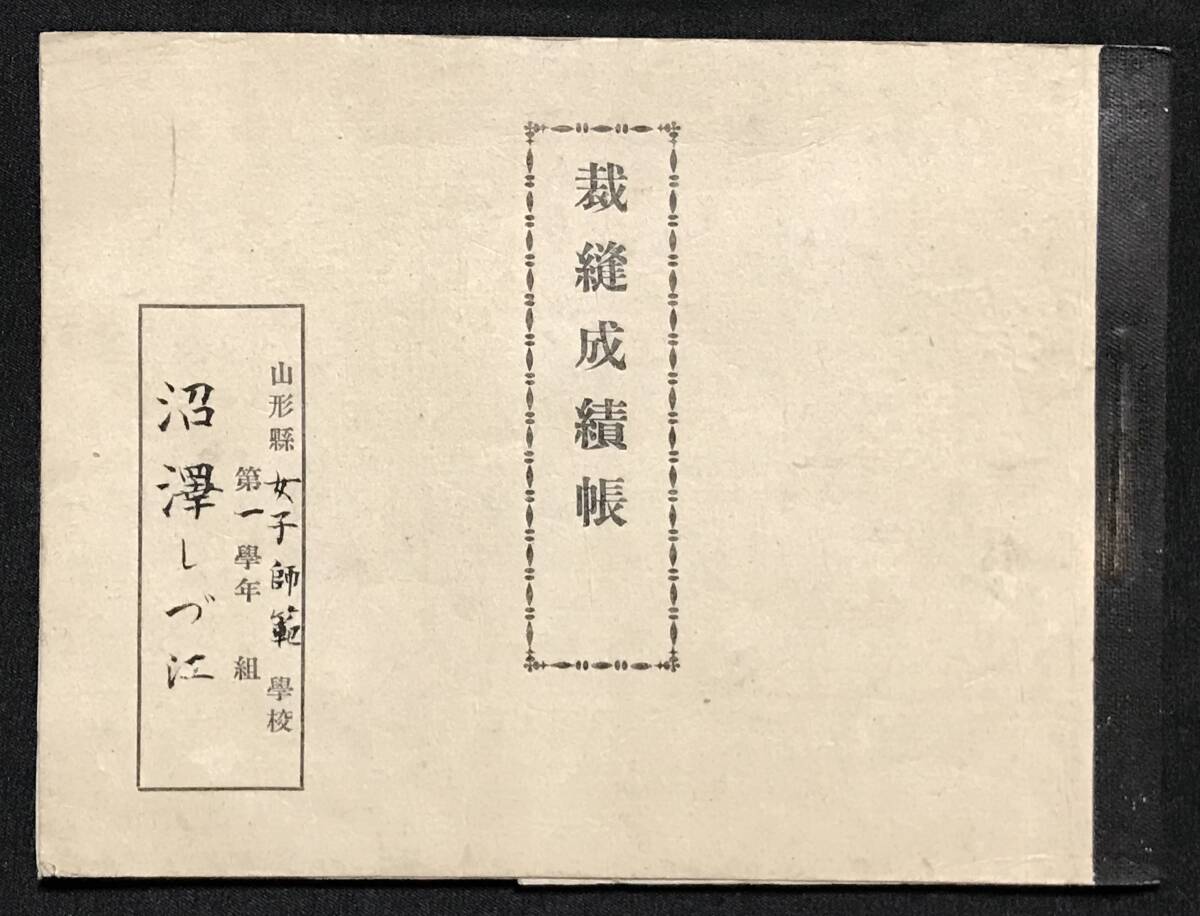 裁縫成績帳
山形縣女子師範學校
第一學年 組
沼澤しづ江